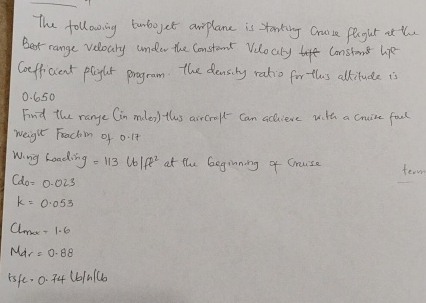 The following turbojet airplane is starting Cruise flight at the
Best range Velocity under the Constant Velocity Constant lift
Coefficient flight program. The density ratio for this altitude is
0.650
Find the range (in miles) this aircraft can achieve with a cruise fuel
weight Fraction of 0.17
Wing Loading = 113 lb/ft² at the beginning of Cruise
Cdo = 0.023
k = 0.053
Clmax = 1.6
Mdr = 0.88
tsfc = 0.74 lb/h/lb